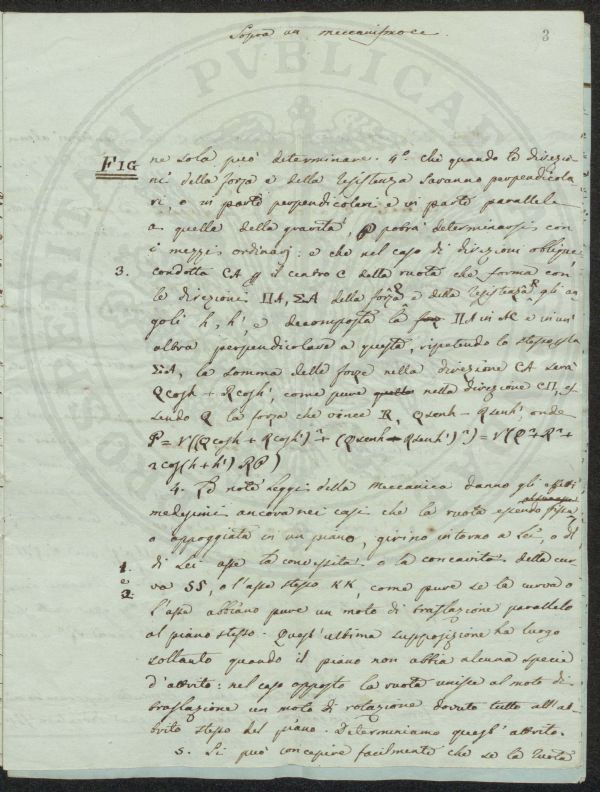 Sopra un meccanismo ec.
3
FIG
ne sola può determinare. 4.° che quando le direzio
ni della forza e della resistenza saranno perpendicola
ri, o in parte perpendicolari e in parte parallele
a quella della gravità, P potrà determinarsi con
i mezzi ordinarj: e che nel caso di direzioni oblique
3. condotta CA pel centro C della ruota che forma con
le direzioni ΠA, ΣA della forza e della resistenza gli an
goli h, h', e decomposta la ΠA in AC e in un'
altra perpendicolare a questa, ripetendo lo stesso per la
ΣA, la somma delle forze nella direzione CA sarà
Qcosh + Rcosh', come pure nella direzione CΠ, es
sendo Q la forza che vince R, Qsenh - Rsenh' onde
P = √((Qcosh + Rcosh')² + (Qsenh - Rsenh')²) = √(Q² + R² +
2cos(h + h') RP)
4. Le note leggi della meccanica danno gli effetti
medesimi ancora nei casi che la ruota essendo fissa,
o appoggiata in un piano, girino intorno a lei, o al
di lei asse la convessità o la concavità della cur
1. e 2. va SS, o l'asse stesso KK, come pure se la curva o
l'asse abbiano pure un moto di traslazione parallelo
al piano stesso. Quest'ultima supposizione ha luogo
soltanto quando il piano non abbia alcuna specie
d'attrito: nel caso opposto la ruota unisce al moto di
traslazione un moto di rotazione dovuto tutto all'at
trito stesso del piano. Determiniamo quest'attrito.
5. Si può concepire facilmente che se la ruota